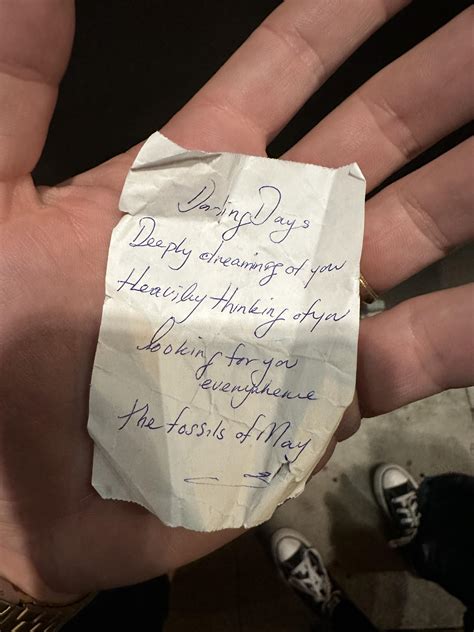 Darling Days
Deeply dreaming of you
Heavily thinking of you
looking for you
everywhere
The fossils of May